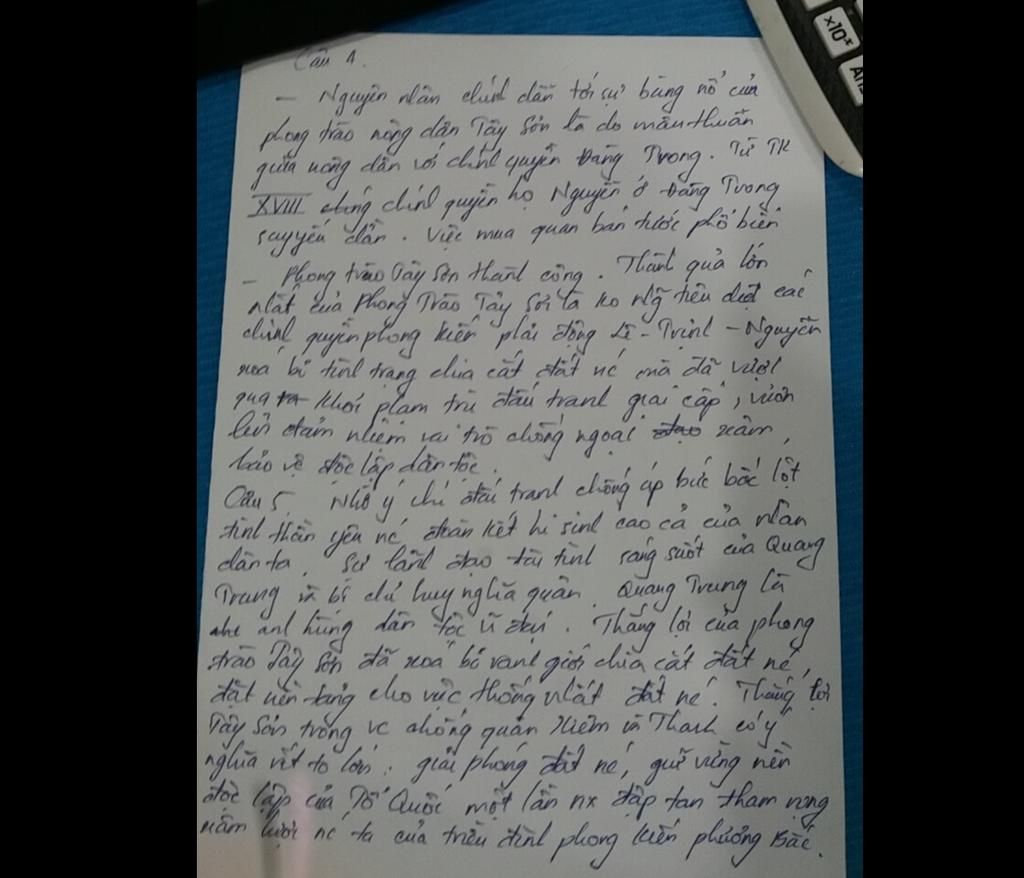 Câu 4.
– Nguyên nhân chính dẫn tới sự bùng nổ của
phong trào nông dân Tây Sơn là do mâu thuẫn
giữa nông dân với chính quyền Đàng Trong. Từ TK
XVIII chính quyền họ Nguyễn ở Đàng Trong
suy yếu dần. Việc mua quan bán tước phổ biến
– Phong trào Tây Sơn thành công. Thành quả lớn
nhất của Phong Trào Tây Sơn là ko ng~ tiêu diệt các
chính quyền phong kiến phản động Lê - Trịnh - Nguyễn
xoá bỏ tình trạng chia cắt đất nc mà đã vượt
qua khỏi phạm trù đấu tranh giai cấp, vươn
lên đảm nhiệm vai trò chống ngoại xâm,
bảo vệ độc lập dân tộc.
Câu 5. Nhờ ý chí đấu tranh chống áp bức bóc lột
tinh thần yêu nc đoàn kết hi sinh cao cả của nhân
dân ta. Sự lãnh đạo tài tình sáng suốt của Quang
Trung và bộ chỉ huy nghĩa quân. Quang Trung là
anh hùng dân tộc vĩ đại. Thắng lợi của phong
trào Tây Sơn đã xoá bỏ ranh giới chia cắt đất nc,
đặt nền tảng cho việc thống nhất đất nc. Thắng lợi
Tây Sơn trong vc chống quân Xiêm và Thanh có ý
nghĩa rất to lớn: giải phóng đất nc, giữ vững nền
độc lập của Tổ Quốc một lần nx đập tan tham vọng
xâm lược nc ta của triều đình phong kiến phương Bắc.
x10ˣ